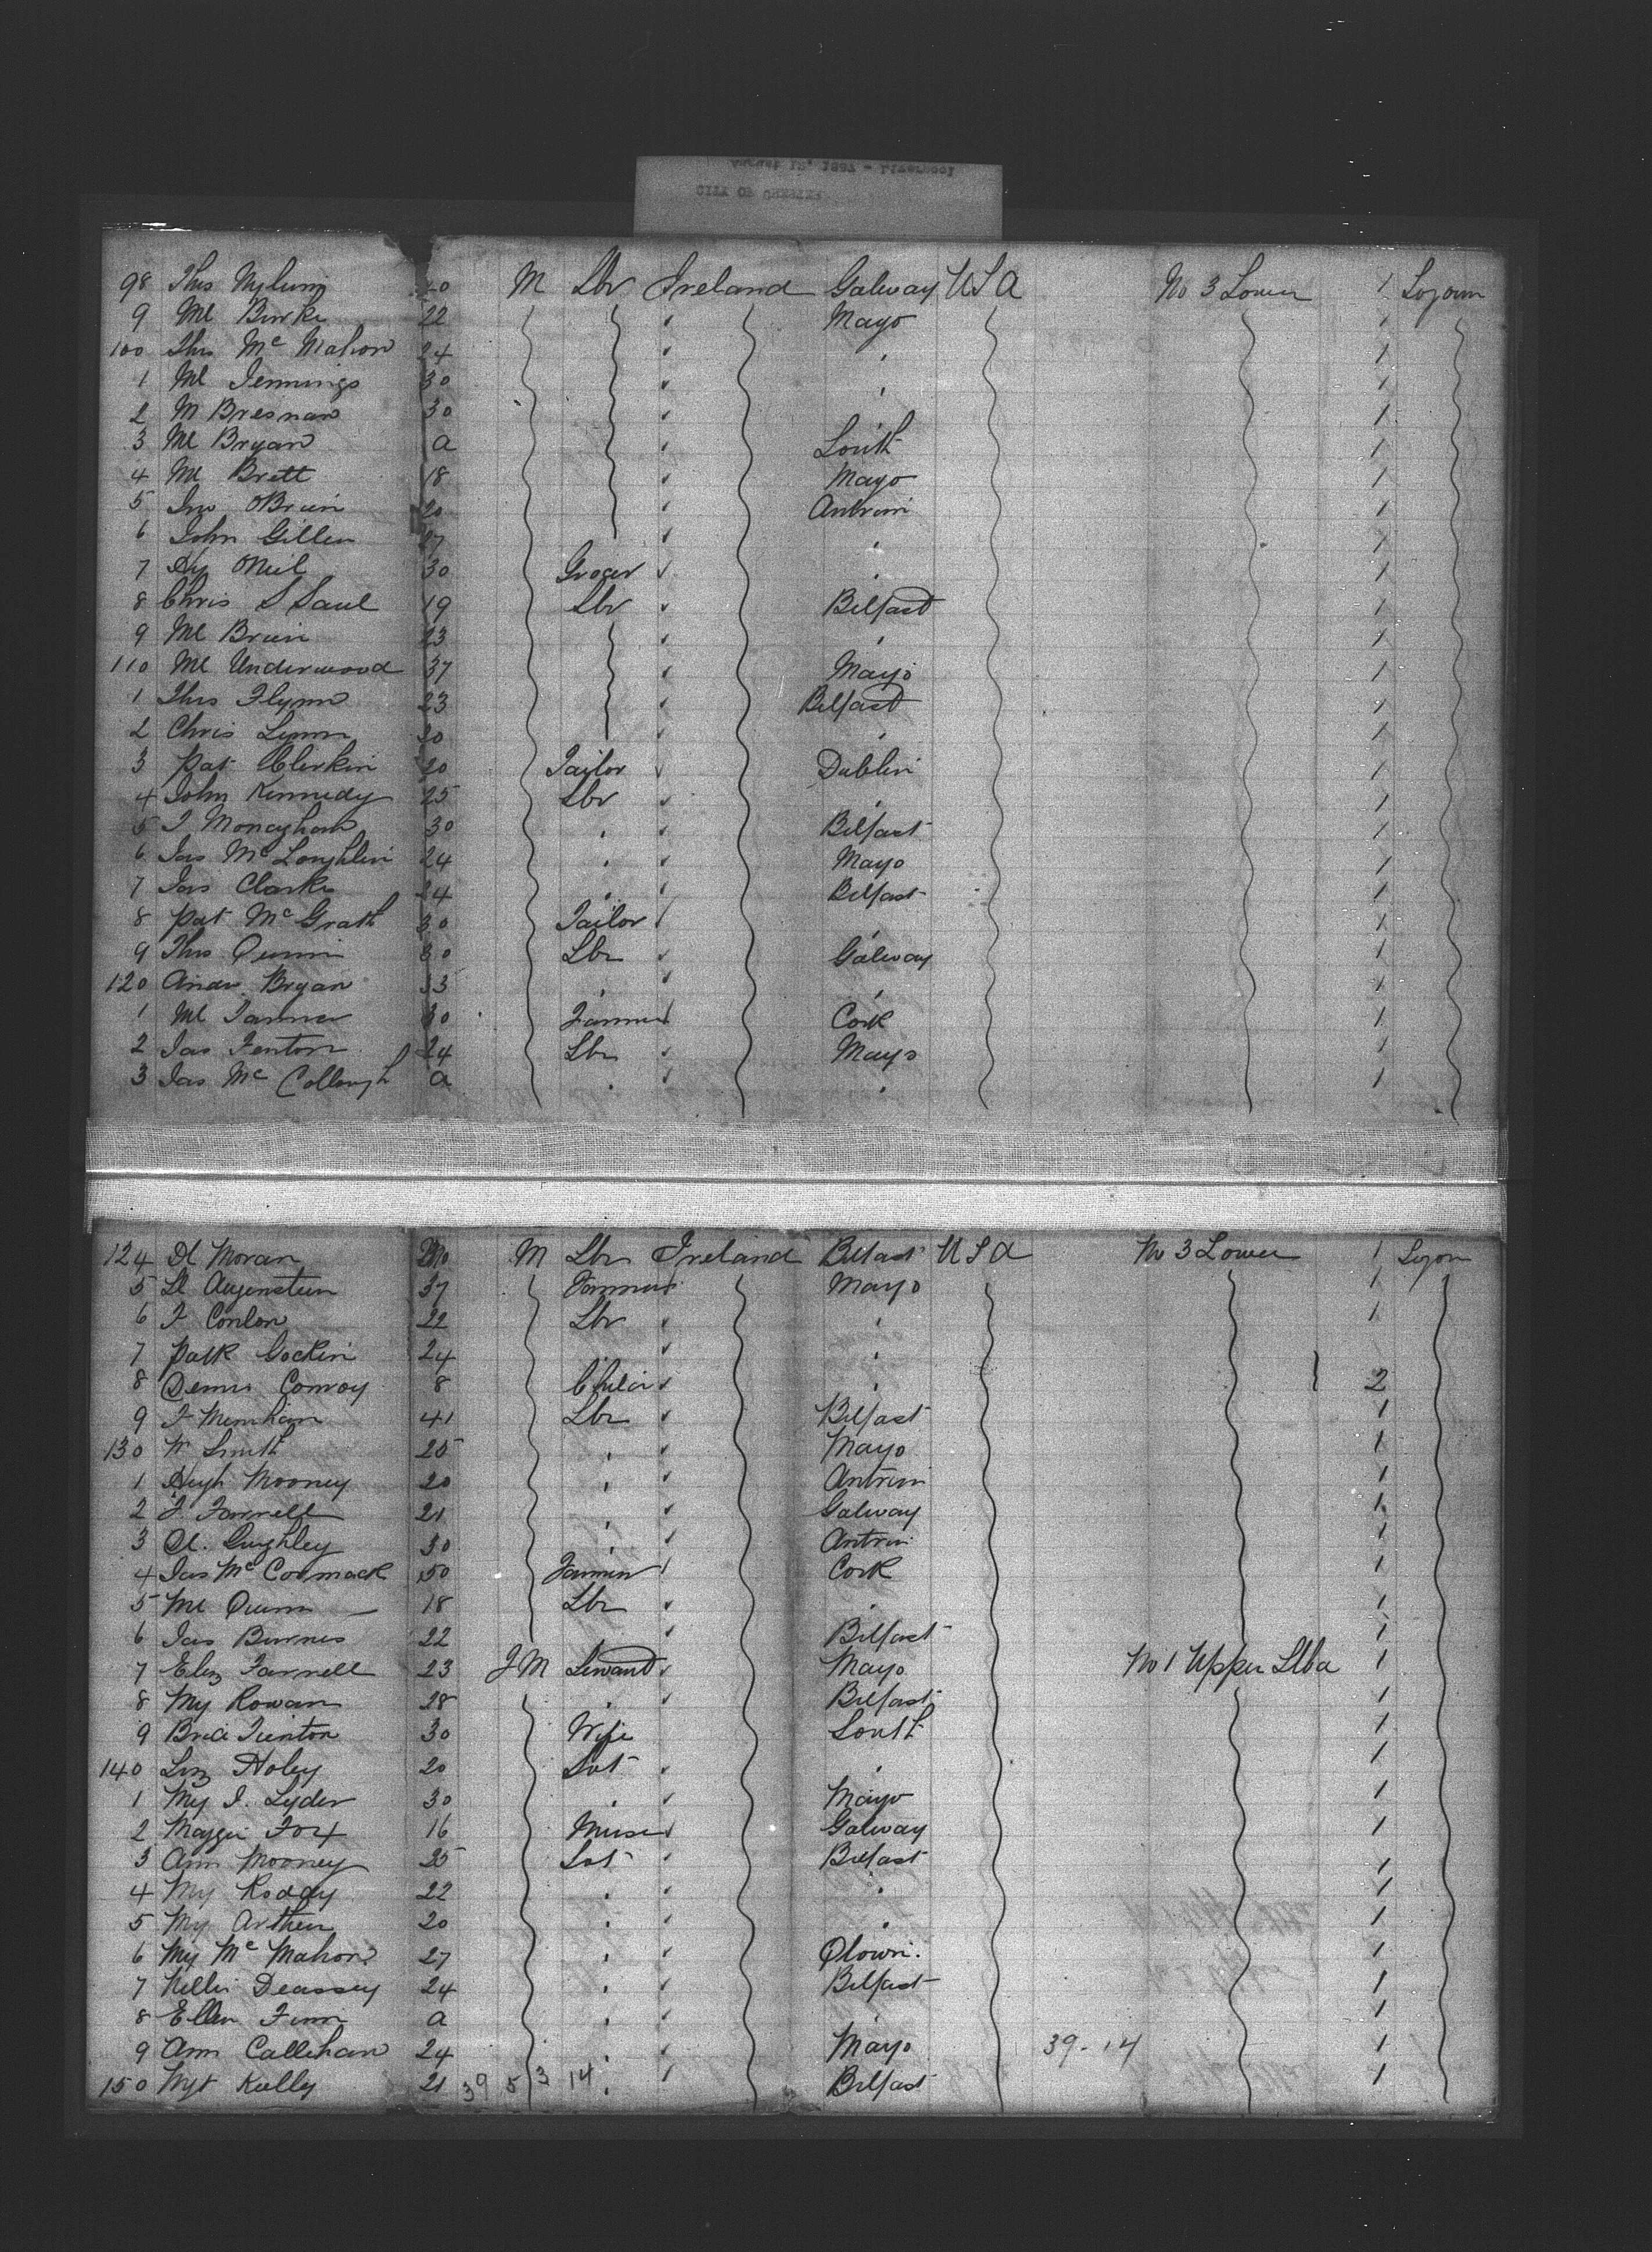 98 Thos 40 M Lbr Ireland Galway U S A No 3 Lower 1 Sojourn
9 Ml Burke 22 Mayo 1
100 Thos Mc Mahon 24 " 1
1 Ml Jennings 30 " 1
2 M Bresnan 30 1
3 Ml Bryan a Louth 1
4 Ml Brett 18 Mayo 1
5 Jno OBrien 20 Antrim 1
6 John Gillen 27 " 1
7 Hy ONeil 30 Grocer " 1
8 Chris S Saul 19 Lbr Belfast 1
9 Ml Brien 23 " 1
110 Ml Underwood 37 Mayo 1
1 Thos Flynn 23 Belfast 1
2 Chris 20 " 1
3 Pat Clerkin 20 Tailor Dublin 1
4 John Kennedy 25 Lbr " 1
5 Monaghan 30 " Belfast 1
6 Jas Mc Loughlin 24 " Mayo 1
7 Jas Clarke 24 " Belfast 1
8 Pat Mc Grath 30 Tailor " 1
9 Thos Quinn 30 Lbr Galway 1
120 Andw Bryan 33 " " 1
1 Ml 30 Farmer Cork 1
2 Jas Fenton 24 Lbr Mayo 1
3 Jas Mc Collough a " " 1
124 Moran M Lbr Ireland Belfast U S A No 3 Lower 1 Sojourn
5 Augenstein 37 Farmer Mayo 1
6 Conlon 22 Lbr " 1
7 Patk 24 " "
8 Dennis Conroy 8 Child " 2
9 41 Lbr Belfast 1
130 W Smith 25 " Mayo 1
1 Hugh Mooney 20 " Antrim 1
2 Farrell 21 " Galway 1
3 30 " Antrim 1
4 Jas Mc Cormack 50 Farmer Cork 1
5 Ml Quinn 18 Lbr " 1
6 Jas Burnes 22 Belfast 1
7 Eliz Farrell 23 F M Servant Mayo No 1 Upper 1
8 My Rowan 28 " Belfast 1
9 30 Wife Louth 1
140 Liz 20 " 1
1 My J. Lyder 30 " Mayo 1
2 Maggie Fox 16 Galway 1
3 Ann Mooney 25 Belfast 1
4 My Roddy 22 " " 1
5 My 20 " " 1
6 My Mc Mahon 27 " 1
7 Nellie Deassey 24 " Belfast 1
8 Ellen Finn a " 1
9 Ann Callihan 24 " Mayo 39-14 1
150 Mgt Kelly 21 39 5 3 14 " Belfast 1